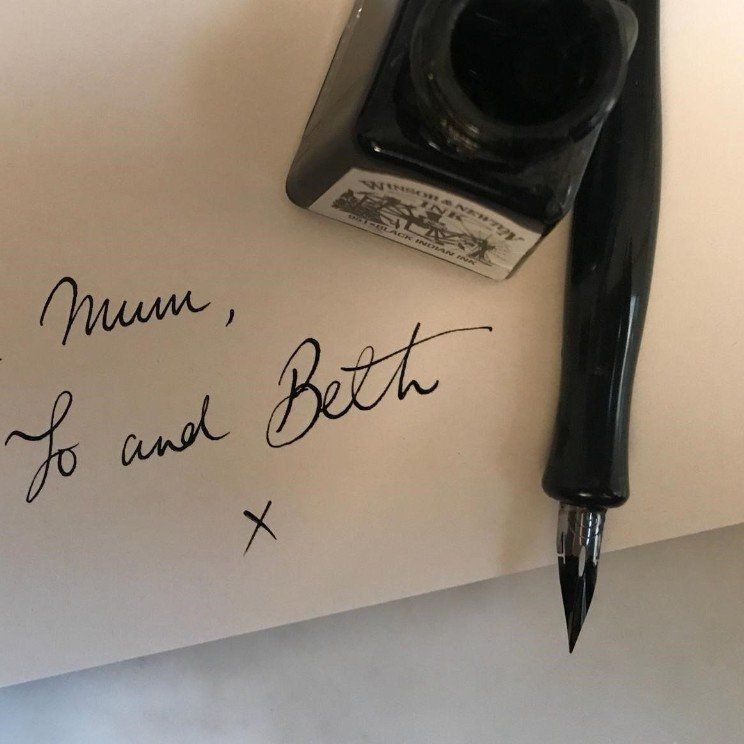 WINSOR & NEWTON
INK
951 • BLACK INDIAN INK
Mum,
Jo and Beth
x